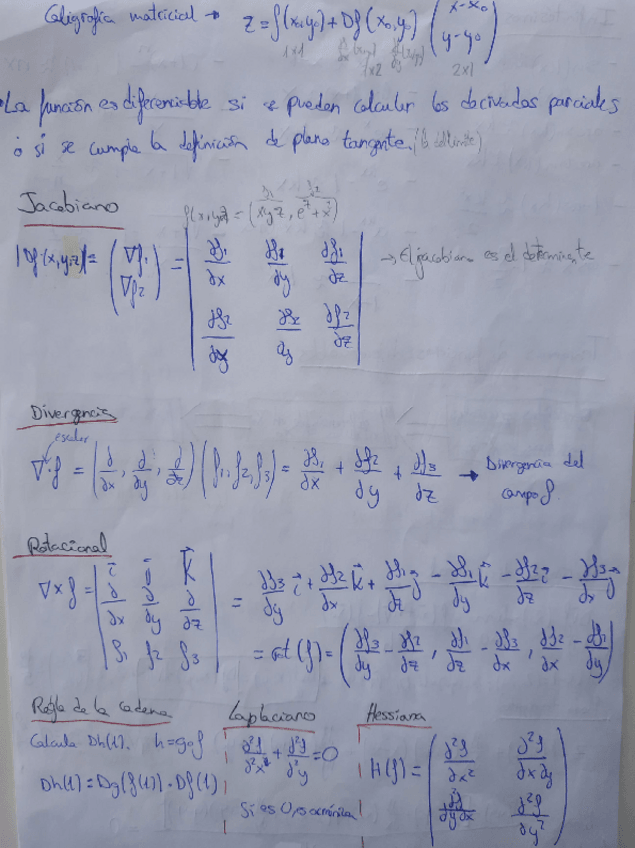 Caligrafía matricial → z = f(x₀,y₀) + Df(x₀,y₀) (x-x₀ / y-y₀)
1x1 1x2 2x1
La función es diferenciable si se pueden calcular las derivadas parciales
ó si se cumple la definición de plano tangente.
Jacobiano
f(x,y,z) = (xyz, e^z + x²)
|Df(x,y,z)| = (∇f₁ / ∇f₂) = | ∂f₁/∂x ∂f₁/∂y ∂f₁/∂z | → El jacobiano es el determinante
| ∂f₂/∂x ∂f₂/∂y ∂f₂/∂z |
Divergencia
escalar
∇·f = (∂/∂x, ∂/∂y, ∂/∂z)(f₁, f₂, f₃) = ∂f₁/∂x + ∂f₂/∂y + ∂f₃/∂z → Divergencia del
campo f
Rotacional
∇×f = | i⃗ j⃗ k⃗ / ∂/∂x ∂/∂y ∂/∂z / f₁ f₂ f₃ | = ∂f₃/∂y i⃗ + ∂f₂/∂x k⃗ + ∂f₁/∂z j⃗ - ∂f₁/∂y k⃗ - ∂f₂/∂z i⃗ - ∂f₃/∂x j⃗
= rot(f) = (∂f₃/∂y - ∂f₂/∂z, ∂f₁/∂z - ∂f₃/∂x, ∂f₂/∂x - ∂f₁/∂y)
Regla de la cadena
Calcula Dh(1). h=g∘f
Dh(1) = Dg(f(1))·Df(1)
Laplaciano
∂²f/∂²x + ∂²f/∂²y = 0
Si es 0, armónica
Hessiana
H(f) = ( ∂²f/∂x² ∂²f/∂x∂y
∂²f/∂y∂x ∂²f/∂y² )